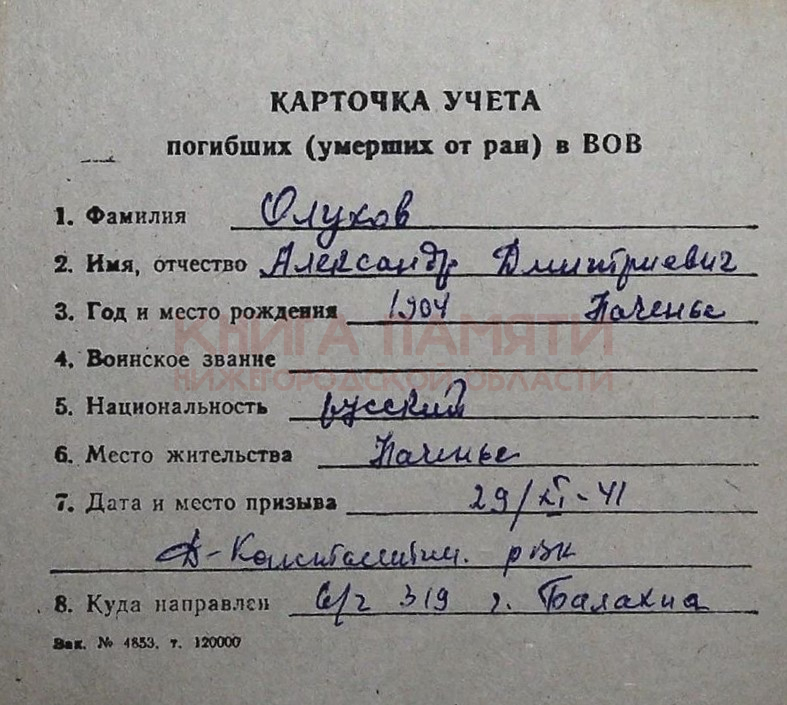 КАРТОЧКА УЧЕТА
погибших (умерших от ран) в ВОВ
1. Фамилия Олухов
2. Имя, отчество Александр Дмитриевич
3. Год и место рождения 1904 Паченье
КНИГА ПАМЯТИ
4. Воинское звание
НИЖЕГОРОДСКОЙ ОБЛАСТИ
5. Национальность русский
6. Место жительства Паченье
7. Дата и место призыва 29/XI-41
Д-Константин. рвк
8. Куда направлен в/ч 319 г. Балахна
Зак. № 4853. т. 120000